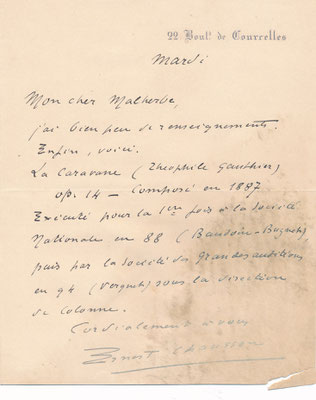 22 Boul.^d de Courcelles
Mardi
Mon cher Malherbe,
j'ai bien peu de renseignements.
Enfin, voici.
La Caravane (Théophile Gauthier)
op. 14 — Composé en 1887
Exécuté pour la 1ère fois à la Société
Nationale en 88 (Baudoin-Bugnet)
puis par la société des Grandes auditions
en 94 (Vergnet) sous la direction
de Colonne.
Cordialement à vous
Ernest Chausson